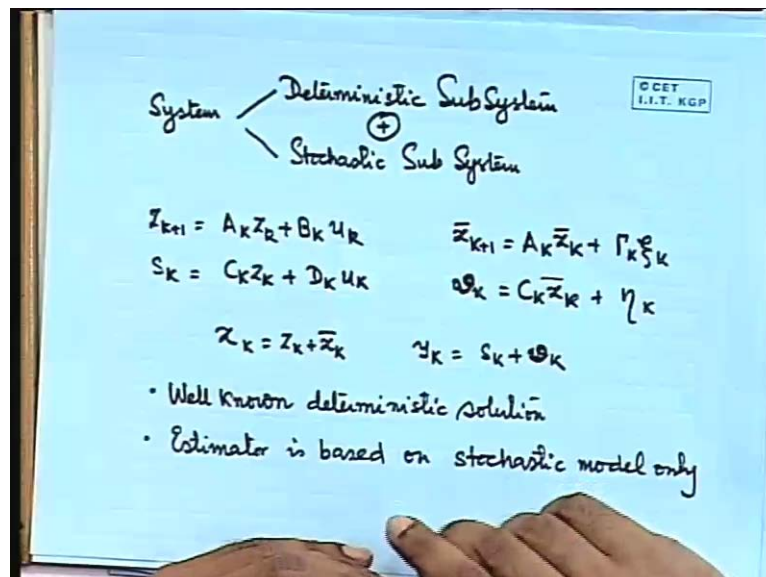 System
Deterministic SubSystem
+
Stochastic Sub System
© CET
I.I.T. KGP
z_{k+1} = A_k z_k + B_k u_k
x̄_{k+1} = A_k x̄_k + Γ_k ξ_k
s_k = C_k z_k + D_k u_k
ϑ_k = C_k x̄_k + η_k
x_k = z_k + x̄_k
y_k = s_k + ϑ_k
· Well known deterministic solution
· Estimator is based on stochastic model only